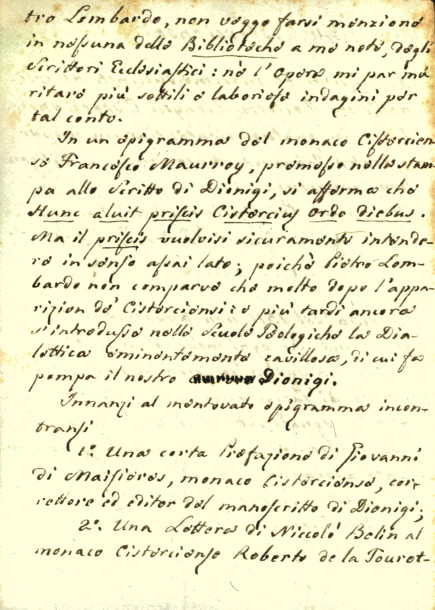 tro Lombardo, non veggo farsi menzione
in nessuna delle Biblioteche a me note, degli
Scrittori Ecclesiastici: nè l'Opera mi par me
ritare più sottili e laboriose indagini per
tal conto.
In un epigramma del monaco Cistercien
se Francesco Maurroy, premesso nella stam
pa allo Scritto di Dionigi, si afferma che
Hunc aluit priscis Cistercius Ordo diebus.
Ma il priscis vuolvisi sicuramente intende
re in senso assai lato; poichè Pietro Lom-
bardo non comparve che molto dopo l'appa
rizion de' Cisterciensi: e più tardi ancora
s'introdusse nelle Scuole Teologiche la Dia-
lettica eminentemente cavillosa, di cui fa
pompa il nostro Dionigi.
Innanzi al mentovato epigramma incon
transi
1.º Una corta Prefazione di Giovanni
di Maisieres, monaco Cisterciense, cor-
rettore ed editor del manoscritto di Dionigi;
2.º Una Lettera di Niccolò Belin al
monaco Cisterciense Roberto de la Touret-